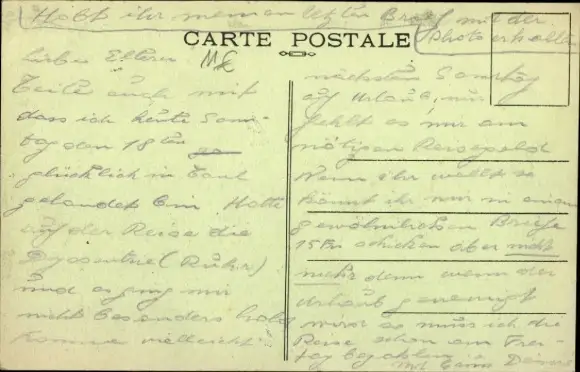 Habt ihr meinen letzten Brief mit der
Photo erhalten
CARTE POSTALE
Liebe Eltern
Teile euch mit
dass ich heute Sonn-
tag den 18ten
glücklich in
gelandet bin Hatte
auf der Reise die
Dysenterie (Ruhr)
und es ging mir
nicht besonders
komme vielleicht
nächsten Sonntag
auf Urlaub, nur
fehlt es mir am
nötigen Reisegeld
Wenn ihr wollt so
könnt ihr mir in einem
gewöhnlichen Briefe
15 Fr schicken aber nicht
mehr denn wenn der
Urlaub genemigt
wird so muss ich die
Reise schon am Frei-
tag bezahlen